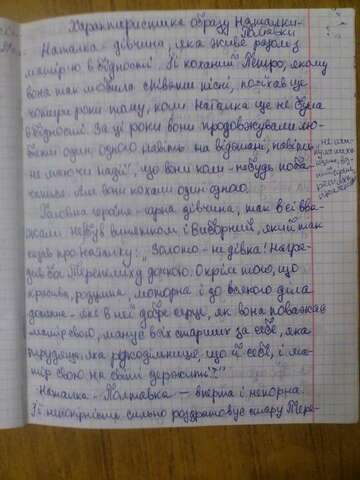 Характеристика образу Наталки-
Полтавки
Наталка - дівчина, яка живе разом з
матір'ю в бідності. Її коханий Петро, якому
вона так любила співати пісні, поїхав ще
чотири роки тому, коли Наталка ще не була
в бідності. За ці роки вони продовжували лю-
бити один одного навіть на відстані, навіть
не маючи надії, що вони коли-небудь поба-
чаться. Але вони кохали один одного.
Головна героїня - гарна дівчина, так її вва-
жали не був винятком і Виборний, який так
казав про Наталку: "Золото - не дівка! Наго-
родив бог Терпелиху дочкою. Окрім того, що
красива, розумна, моторна і до всякого діла
дотепна - яке в неї добре серце, як вона поважає
матір свою, шанує всіх старших за себе, яка
трудяща, яка рукодільниця, що й себе, і ма-
тір свою на світі держить!"
Наталка - Полтавка — вперта і некорна.
Її непокірність сильно роздратовує стару Тере-